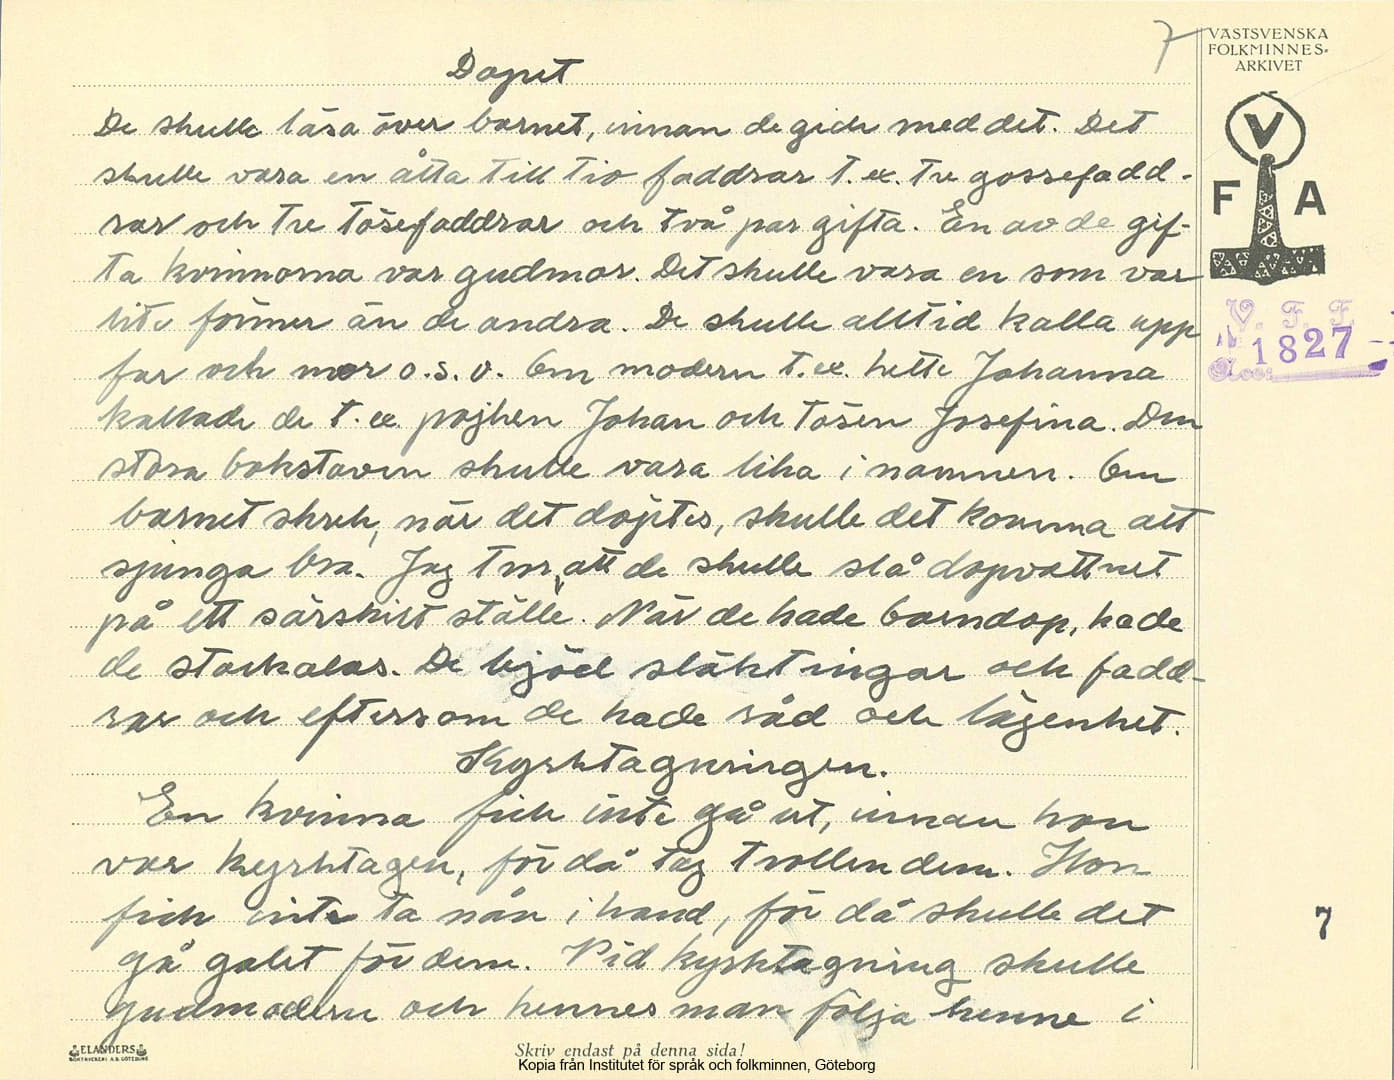 7
VÄSTSVENSKA
FOLKMINNES-
ARKIVET
V
F A
V. F. F.
1827
Acc:
Dopet
De skulle läsa över barnet, innan de gick med det. Det
skulle vara en åtta till tio faddrar t. ex. tre gossefadd-
rar och tre tösefaddrar och två par gifta. En av de gif-
ta kvinnorna var gudmor. Det skulle vara en som var
lite förmer än de andra. De skulle alltid kalla upp
far och mor o.s.v. Om modern t.ex. hette Johanna
kallade de t. ex. pojken Johan och tösen Josefina. Den
stora bokstaven skulle vara lika i namnen. Om
barnet skrek, när det döptes, skulle det komma att
sjunga bra. Jag tror, att de skulle slå dopvattnet
på ett särskilt ställe. När de hade barndop, hade
de storkalas. De bjöd släktingar och fadd-
rar och eftersom de hade råd och lägenhet.
Kyrktagningen.
En kvinna fick inte gå ut, innan hon
var kyrktagen, för då tog trollen dem. Hon
fick inte ta nån i hand, för då skulle det
gå galet för dem. Vid kyrktagning skulle
gudmodern och hennes man följa henne i
7
ELANDERS
BOKTRYCKERI A.B. GÖTEBORG
Skriv endast på denna sida!
Kopia från Institutet för språk och folkminnen, Göteborg